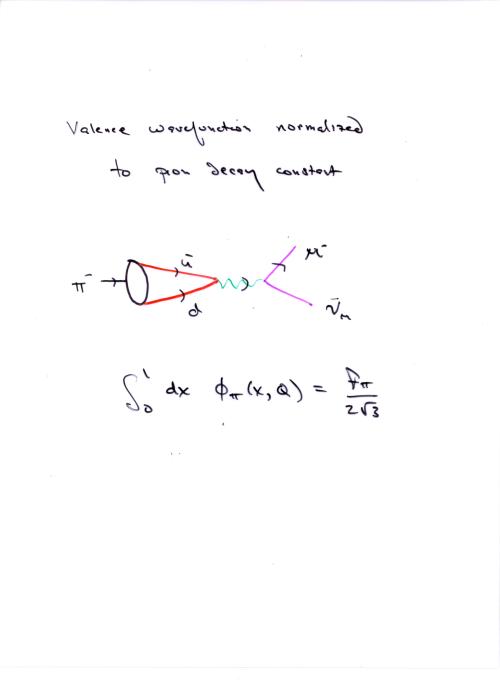 Valence wavefunction normalized
to pion decay constant
π⁻ ū μ⁻
d ν̄_μ
∫₀¹ dx ϕ_π(x, Q) = f_π / 2√3